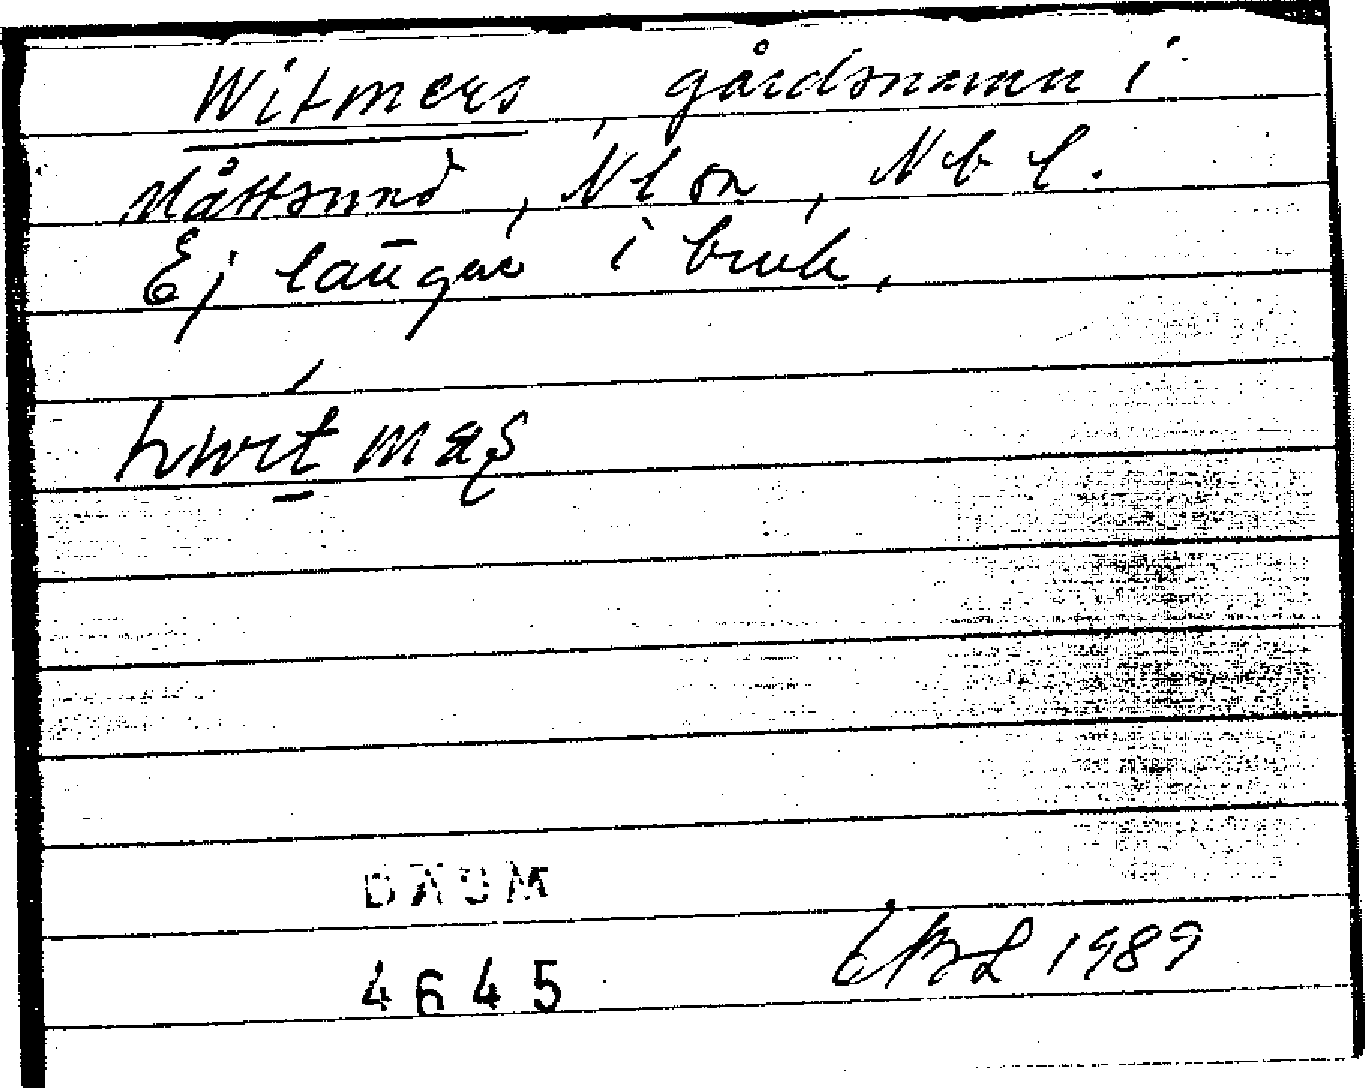 Witmers, gårdsnamn i
Måttsund, Nlön, Nbl.
Ej längre i bruk.
DAUM
4645
EBL 1989